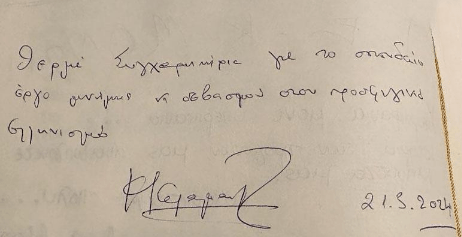 Θερμά Συγχαρητήρια με το σπουδαίο
έργο μνήμης κ σεβασμού στον προσφυγικό
Ελληνισμό
21.5.2024